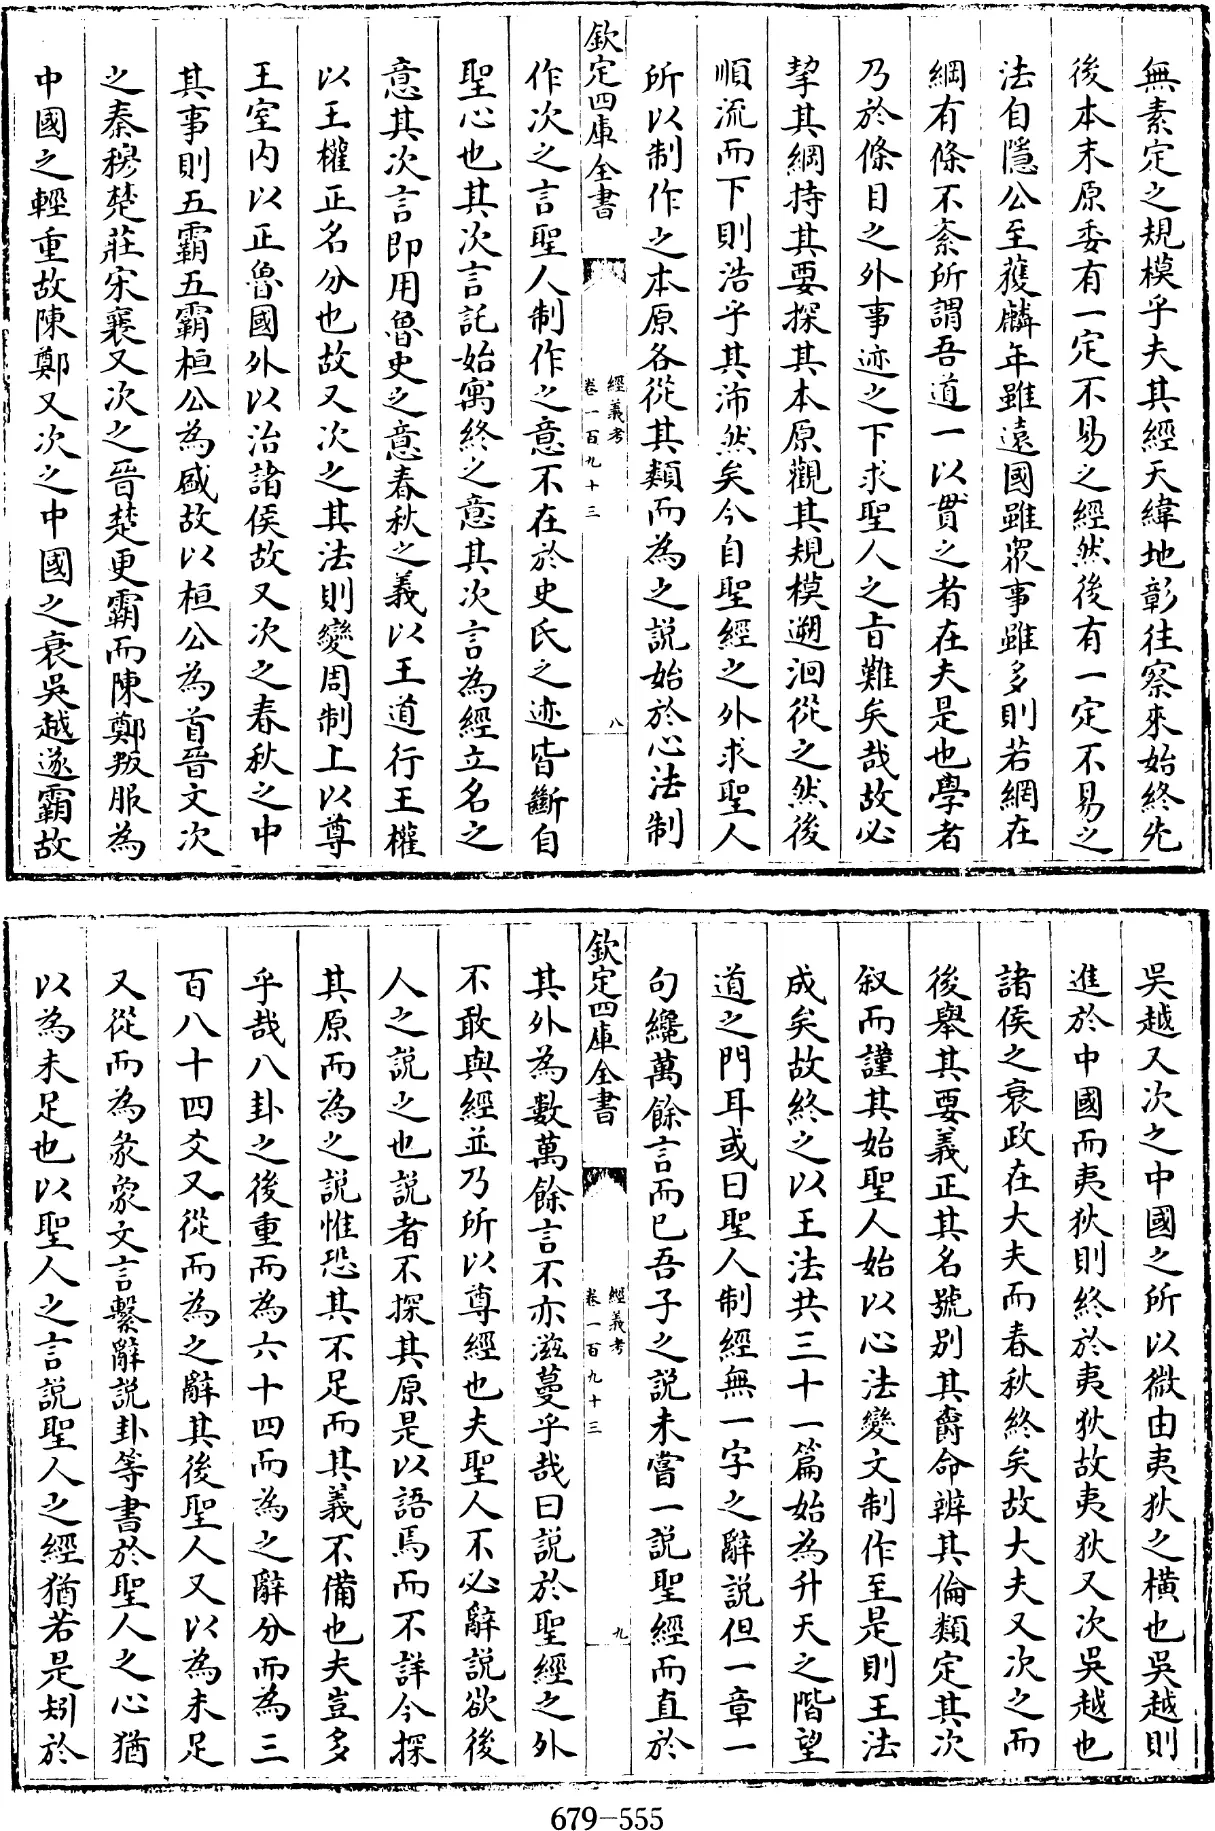 無素定之規模乎夫其經天緯地彰往察來始終先
後本末原委有一定不易之經然後有一定不易之
法自隱公至獲麟年雖遠國雖衆事雖多則若網在
綱有條不紊所謂吾道一以貫之者在夫是也學者
乃於條目之外事迹之下求聖人之旨難矣哉故必
挈其綱持其要探其本原觀其規模遡洄從之然後
順流而下則浩乎其沛然矣今自聖經之外求聖人
所以制作之本原各從其類而為之說始於心法制
欽定四庫全書
經義考
卷一百九十三
八
作次之言聖人制作之意不在於史氏之迹皆斷自
聖心也其次言託始寓終之意其次言為經立名之
意其次言即用魯史之意春秋之義以王道行王權
以王權正名分也故又次之其法則變周制上以尊
王室内以正魯國外以治諸侯故又次之春秋之中
其事則五霸五霸桓公為盛故以桓公為首晉文次
之秦穆楚莊宋襄又次之晉楚更霸而陳鄭叛服為
中國之輕重故陳鄭又次之中國之衰吳越遂霸故
吳越又次之中國之所以微由夷狄之横也吳越則
進於中國而夷狄則終於夷狄故夷狄又次吳越也
諸侯之衰政在大夫而春秋終矣故大夫又次之而
後舉其要義正其名號别其爵命辨其倫類定其次
叙而謹其始聖人始以心法變文制作至是則王法
成矣故終之以王法共三十一篇始為升天之階望
道之門耳或曰聖人制經無一字之辭說但一章一
句纔萬餘言而已吾子之說未嘗一說聖經而直於
欽定四庫全書
經義考
卷一百九十三
九
其外為數萬餘言不亦滋蔓乎哉曰說於聖經之外
不敢與經並乃所以尊經也夫聖人不必辭說欲後
人之說之也說者不探其原是以語焉而不詳今探
其原而為之說惟恐其不足而其義不備也夫豈多
乎哉八卦之後重而為六十四而為之辭分而為三
百八十四爻又從而為之辭其後聖人又以為未足
又從而為彖象文言繫辭說卦等書於聖人之心猶
以為未足也以聖人之言說聖人之經猶若是矧於
679-555